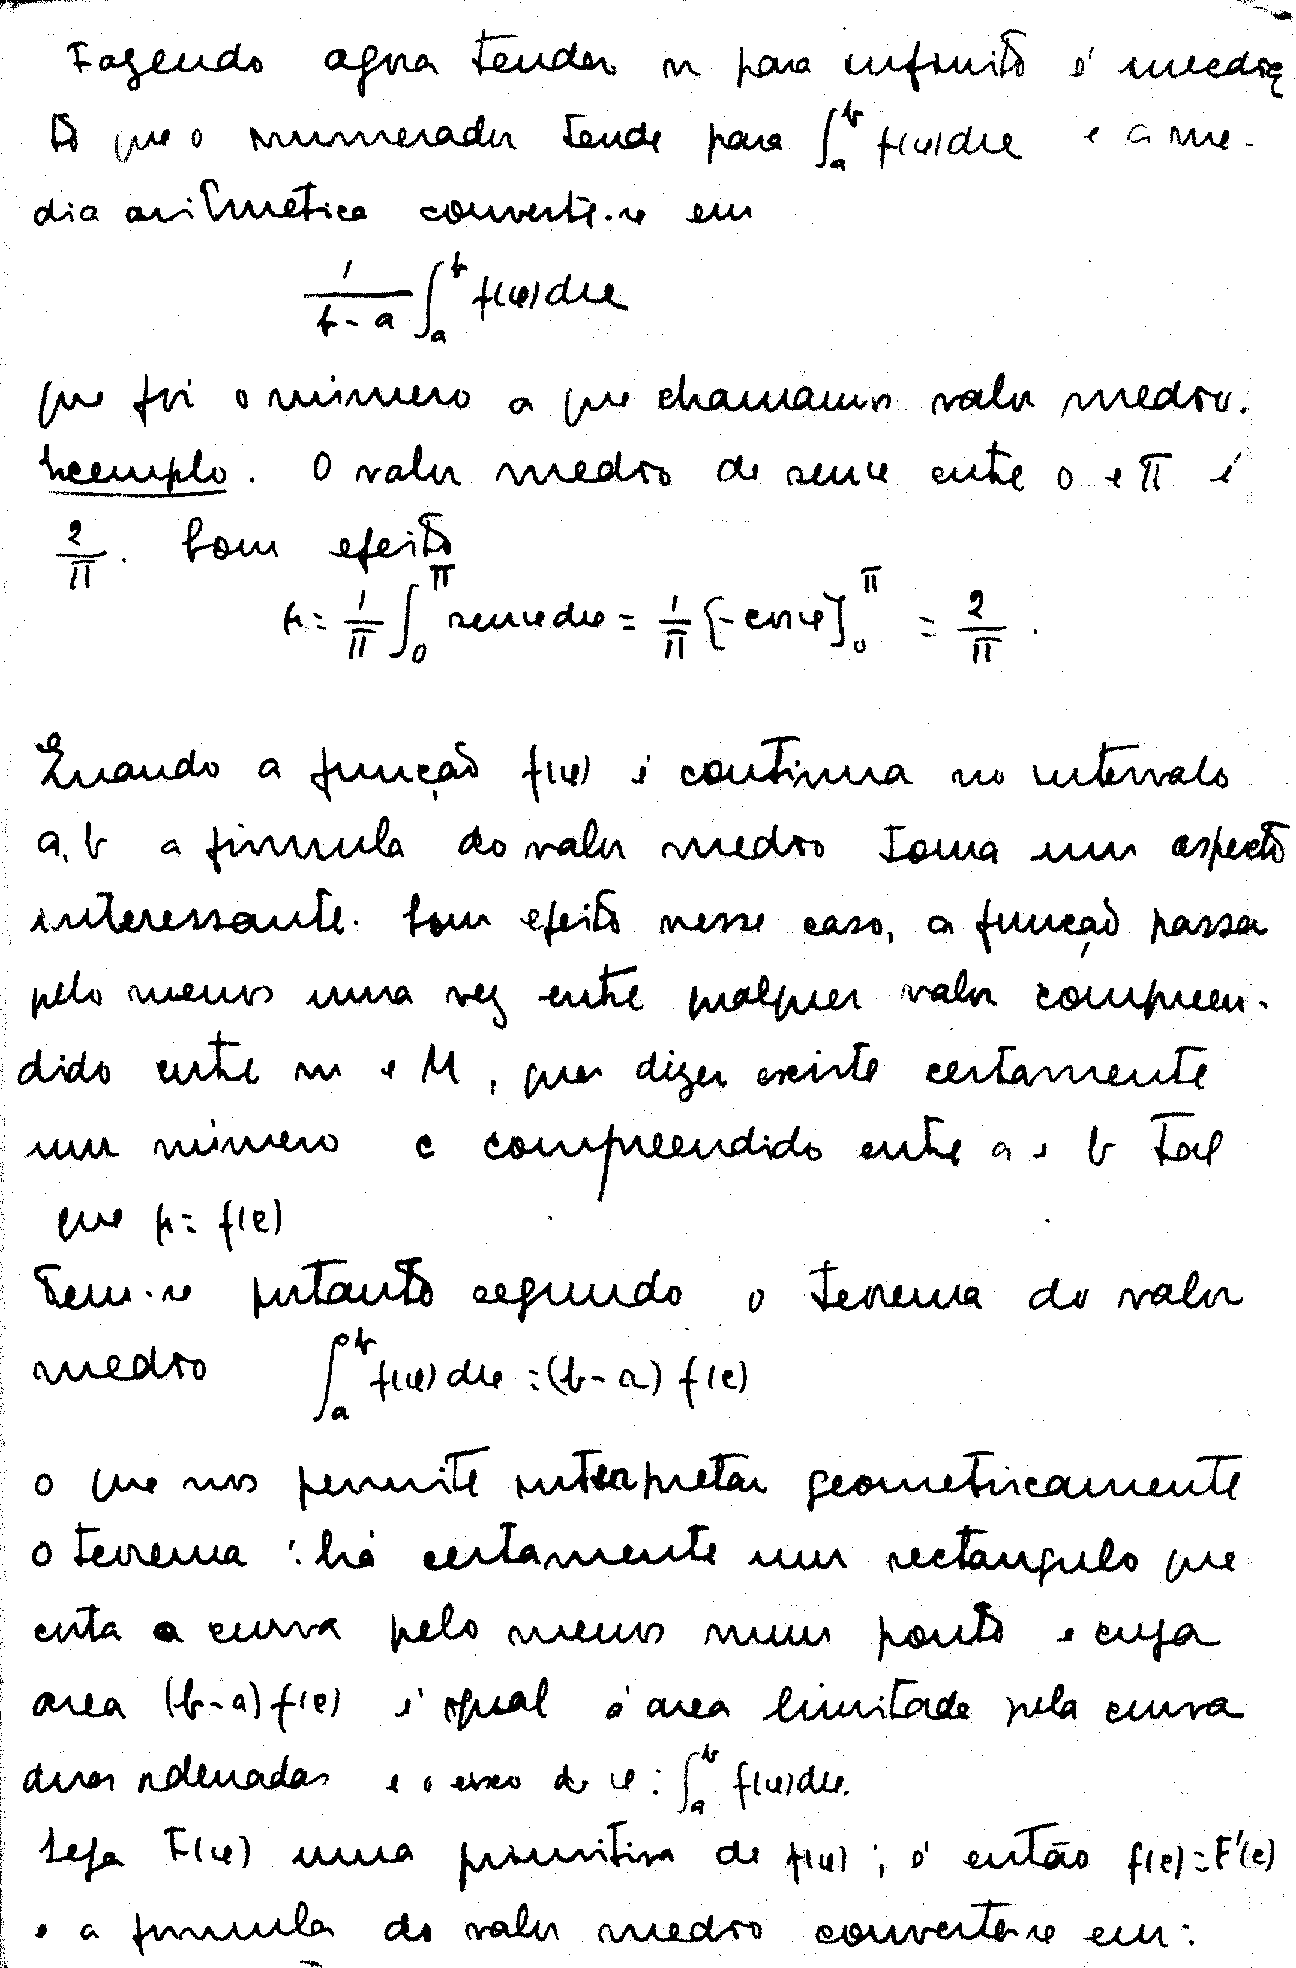 Fazendo agora tender n para infinito é imedia
to que o numerador tende para ∫_a^b f(x)dx e a me-
dia aritmetica converte-se em
1/(b-a) ∫_a^b f(x)dx
que foi o número a que chamamos valor medio.
Exemplo. O valor medio de senx entre 0 e π é
2/π. Com efeito
μ = 1/π ∫_0^π senxdx = 1/π [-cosx]_0^π = 2/π.
Quando a função f(x) é continua no intervalo
a,b a fórmula do valor medio toma um aspecto
interessante. Com efeito nesse caso, a função passa
pelo menos uma vez entre qualquer valor compreen-
dido entre m e M, quer dizer existe certamente
um número c compreendido entre a e b tal
que μ = f(c)
Tem-se portanto segundo o teorema do valor
medio ∫_a^b f(x)dx = (b-a) f(c)
o que nos permite interpretar geometricamente
o teorema : há certamente um rectangulo que
corta a curva pelo menos num ponto e cuja
area (b-a)f(c) é igual á area limitada pela curva
duas ordenadas e o eixo de x : ∫_a^b f(x)dx.
Seja F(x) uma primitiva de f(x) ; é então f(c)=F'(c)
e a formula do valor medio converte-se em: